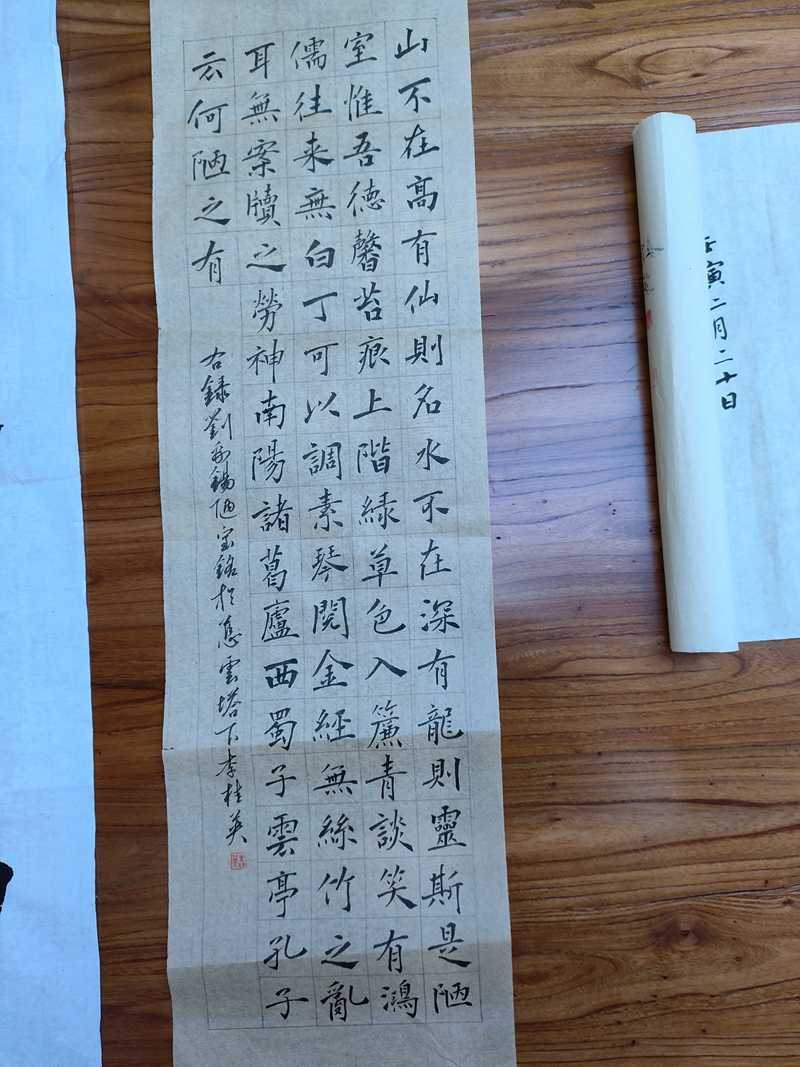 山不在高有仙則名水不在深有龍則靈斯是陋
室惟吾德馨苔痕上階緑草色入簾青談笑有鴻
儒往来無白丁可以調素琴閱金經無絲竹之亂
耳無案牘之勞神南陽諸葛廬西蜀子雲亭孔子
云何陋之有
右録劉禹錫陋室銘於慈雲塔下李桂英
壬寅二月二十日